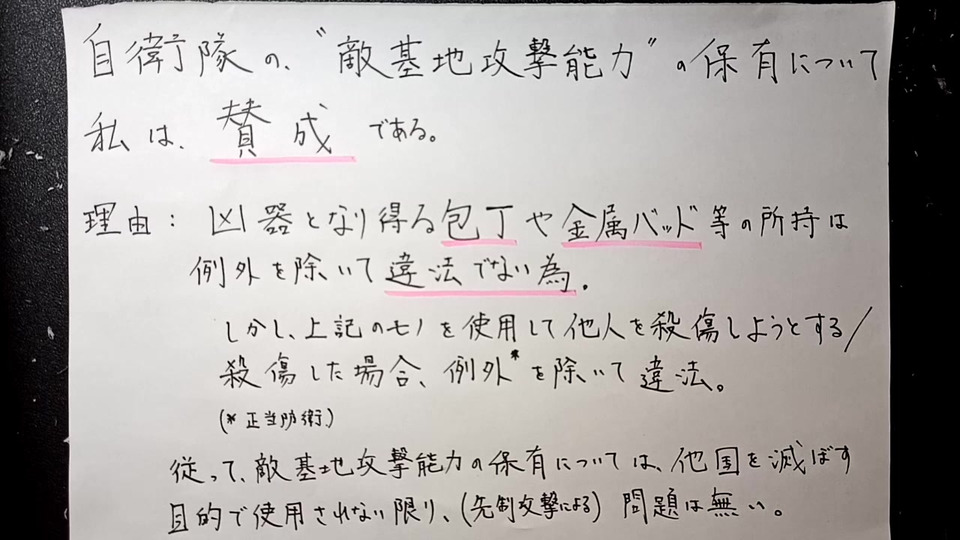 自衛隊の、"敵基地攻撃能力"の保有について
私は、賛成である。
理由：凶器となり得る包丁や金属バッド等の所持は
例外を除いて違法でない為。
しかし、上記のモノを使用して他人を殺傷しようとする/
殺傷した場合、例外*を除いて違法。
(* 正当防衛。)
従って、敵基地攻撃能力の保有については、他国を滅ぼす
目的で使用されない限り、(先制攻撃による)問題は無い。